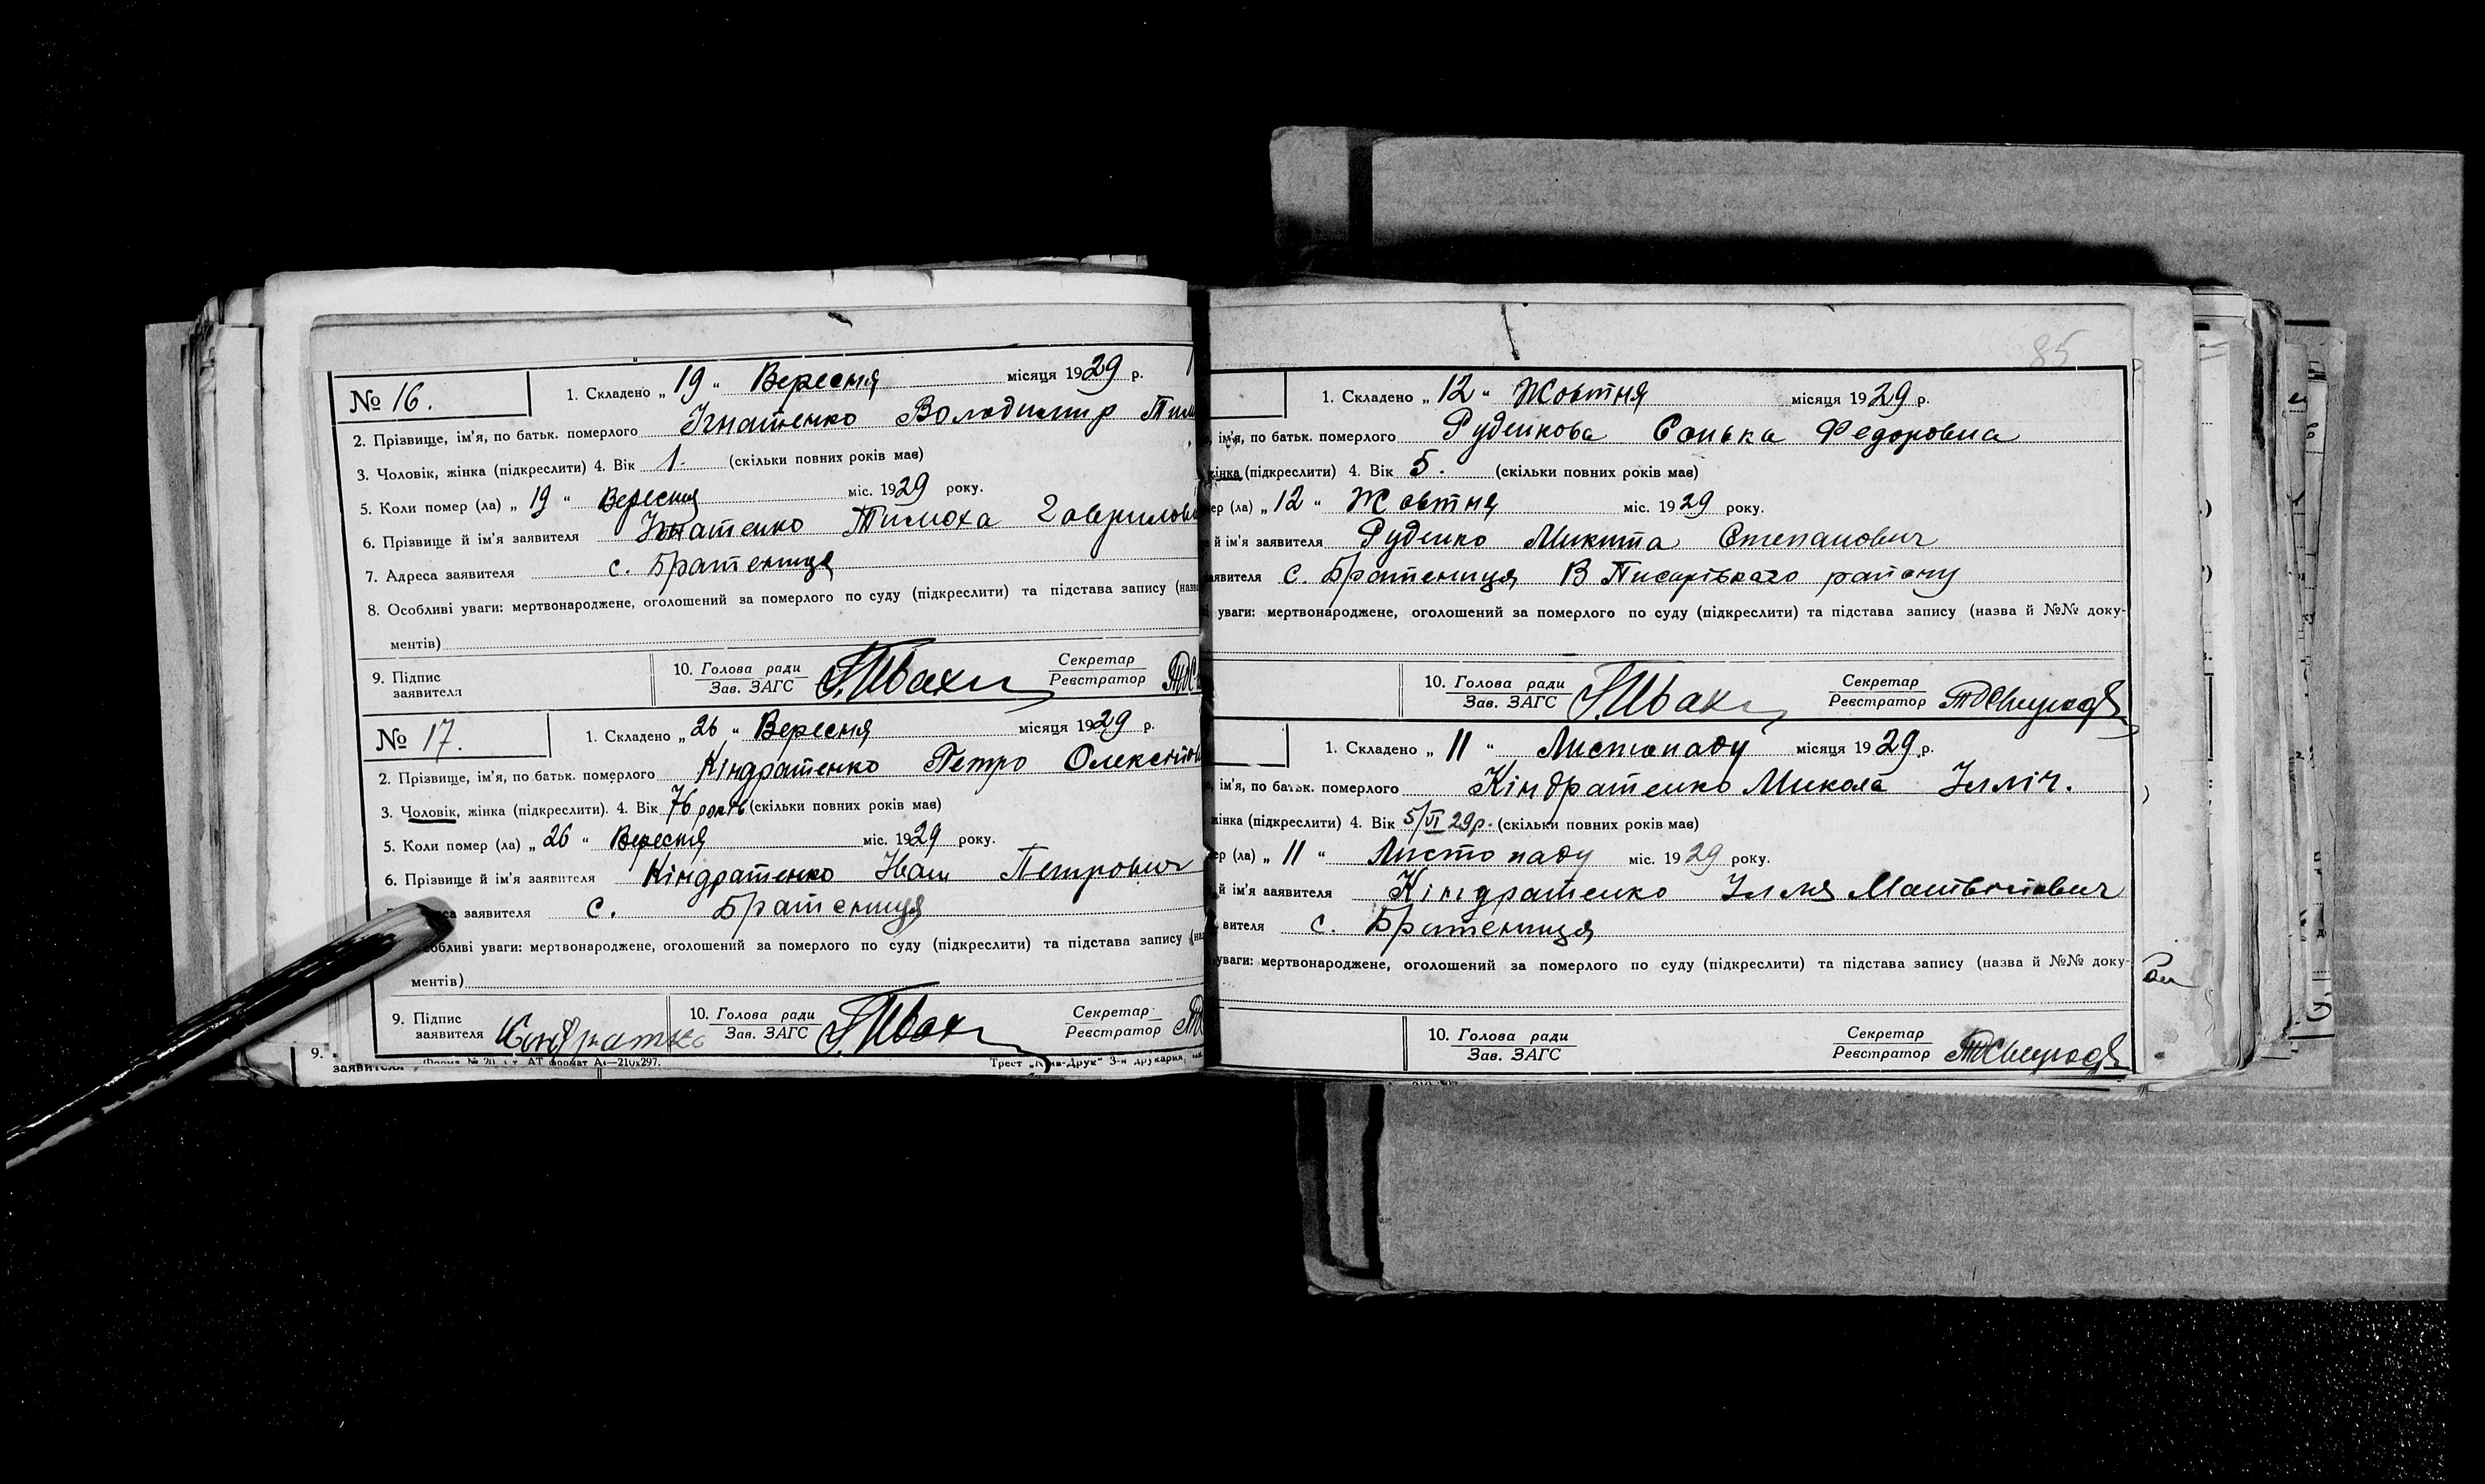 № 16.
1. Складено „ 19 “ Вересня місяця 1929 р.
2. Прізвище, ім'я, по батьк. померлого Ігнатенко Володимир Тим
3. Чоловік, жінка (підкреслити) 4. Вік 1. (скільки повних років має)
5. Коли помер (ла) „ 19 “ Вересня міс. 1929 року.
6. Прізвище й ім'я заявителя Ігнатенко Тимоха Гаврилови
7. Адреса заявителя с. Братениця
8. Особливі уваги: мертвонароджене, оголошений за померлого по суду (підкреслити) та підстава запису (назва
ментів)
9. Підпис заявителя
10. Голова ради Зав. ЗАГС
Секретар Реєстратор
№ 17.
1. Складено „ 26 “ Вересня місяця 1929 р.
2. Прізвище, ім'я, по батьк. померлого Кіндратенко Петро
3. Чоловік, жінка (підкреслити). 4. Вік 76 років (скільки повних років має)
5. Коли помер (ла) „ 26 “ Вересня міс. 1929 року.
6. Прізвище й ім'я заявителя Кіндратенко Іван Петрович
заявителя с. Братениця
собливі уваги: мертвонароджене, оголошений за померлого по суду (підкреслити) та підстава запису (наз
ментів)
9. Підпис заявителя
10. Голова ради Зав. ЗАГС
Секретар Реєстратор
9.
заявителя
АТ формат А4—210x297.
Трест „Київ-Друк“ 3-я друкарня
85
1. Складено „ 12 “ Жовтня місяця 1929 р.
ім'я, по батьк. померлого Руденкова Сонька Федоровна
жінка (підкреслити) 4. Вік 5. (скільки повних років має)
ер (ла) „ 12 “ Жовтня міс. 1929 року.
й ім'я заявителя Руденко Микита Степанович
аявителя с. Братениця В Писарівкаго району
уваги: мертвонароджене, оголошений за померлого по суду (підкреслити) та підстава запису (назва й №№ доку-
10. Голова ради Зав. ЗАГС
Секретар Реєстратор
1. Складено „ 11 “ Листопаду місяця 1929 р.
ім'я, по батьк. померлого Кіндратенко Микола Ілліч.
жінка (підкреслити) 4. Вік 5/VI 29р. (скільки повних років має)
ер (ла) „ 11 “ Листопаду міс. 1929 року.
й ім'я заявителя Кіндратенко Ілля Матвійович
вителя с. Братениця
уваги: мертвонароджене, оголошений за померлого по суду (підкреслити) та підстава запису (назва й №№ доку-
10. Голова ради Зав. ЗАГС
Секретар Реєстратор